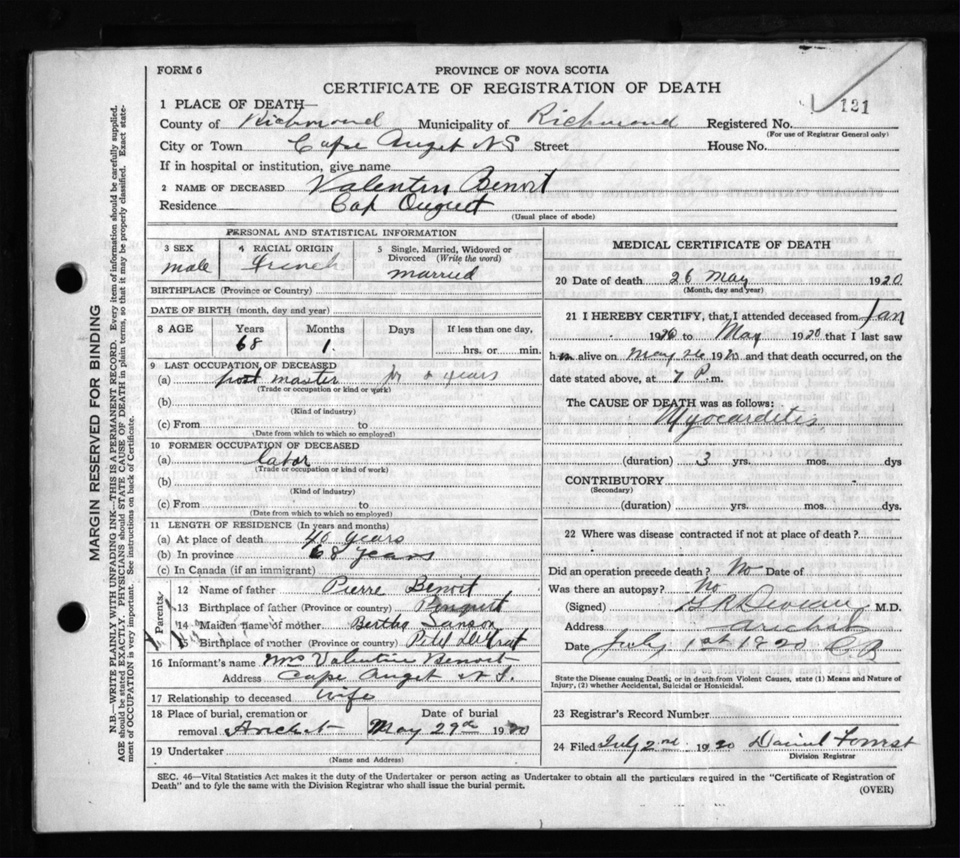 FORM 6
PROVINCE OF NOVA SCOTIA
CERTIFICATE OF REGISTRATION OF DEATH
131
1 PLACE OF DEATH—
County of Richmond Municipality of Richmond Registered No.
(For use of Registrar General only)
City or Town Cape Auget N S Street House No.
If in hospital or institution, give name
2 NAME OF DECEASED Valentin Benoit
Residence Cap Ouguet
(Usual place of abode)
PERSONAL AND STATISTICAL INFORMATION
3 SEX male
4 RACIAL ORIGIN French
5 Single, Married, Widowed or Divorced (Write the word) married
BIRTHPLACE (Province or Country)
DATE OF BIRTH (month, day and year)
8 AGE Years 68 Months 1. Days If less than one day, hrs. or min.
9 LAST OCCUPATION OF DECEASED
(a) post master years
(Trade or occupation or kind of work)
(b)
(Kind of industry)
(c) From to
(Date from which to which so employed)
10 FORMER OCCUPATION OF DECEASED
(a) labor
(Trade or occupation or kind of work)
(b)
(Kind of industry)
(c) From to
(Date from which to which so employed)
11 LENGTH OF RESIDENCE (In years and months)
(a) At place of death 40 years
(b) In province 68 years
(c) In Canada (if an immigrant)
Parents
12 Name of father Pierre Benoit
13 Birthplace of father (Province or country)
14 Maiden name of mother Bertha Samson
15 Birthplace of mother (Province or country) Petit
16 Informant's name Mrs Valentin Benoit
Address Cape Auget N S.
17 Relationship to deceased wife
18 Place of burial, cremation or removal Arichat Date of burial May 29th 1920
19 Undertaker
(Name and Address)
MEDICAL CERTIFICATE OF DEATH
20 Date of death 26 May 1920
(Month, day and year)
21 I HEREBY CERTIFY, that I attended deceased from Jan
1920 to May 1920 that I last saw
him alive on May 26 1920 and that death occurred, on the
date stated above, at 7 P. m.
The CAUSE OF DEATH was as follows:
Myocarditis
(duration) 3 yrs. mos. dys
CONTRIBUTORY
(Secondary)
(duration) yrs. mos. dys.
22 Where was disease contracted if not at place of death?
Did an operation precede death? No Date of
Was there an autopsy? No
(Signed) M.D.
Address Arichat
Date July 1st 1920 C B
State the Disease causing Death, or in death from Violent Causes, state (1) Means and Nature of
Injury, (2) whether Accidental, Suicidal or Homicidal.
23 Registrar's Record Number
24 Filed July 2nd 1920 Daniel Forrest
Division Registrar
SEC. 46—Vital Statistics Act makes it the duty of the Undertaker or person acting as Undertaker to obtain all the particulars required in the "Certificate of Registration of
Death" and to fyle the same with the Division Registrar who shall issue the burial permit.
(OVER)
MARGIN RESERVED FOR BINDING
N.B.—WRITE PLAINLY WITH UNFADING INK—THIS IS A PERMANENT RECORD. Every item of information should be carefully supplied.
AGE should be stated EXACTLY. PHYSICIANS should STATE CAUSE OF DEATH in plain terms, so that it may be properly classified. Exact state-
ment of OCCUPATION is very important. See instructions on back of Certificate.